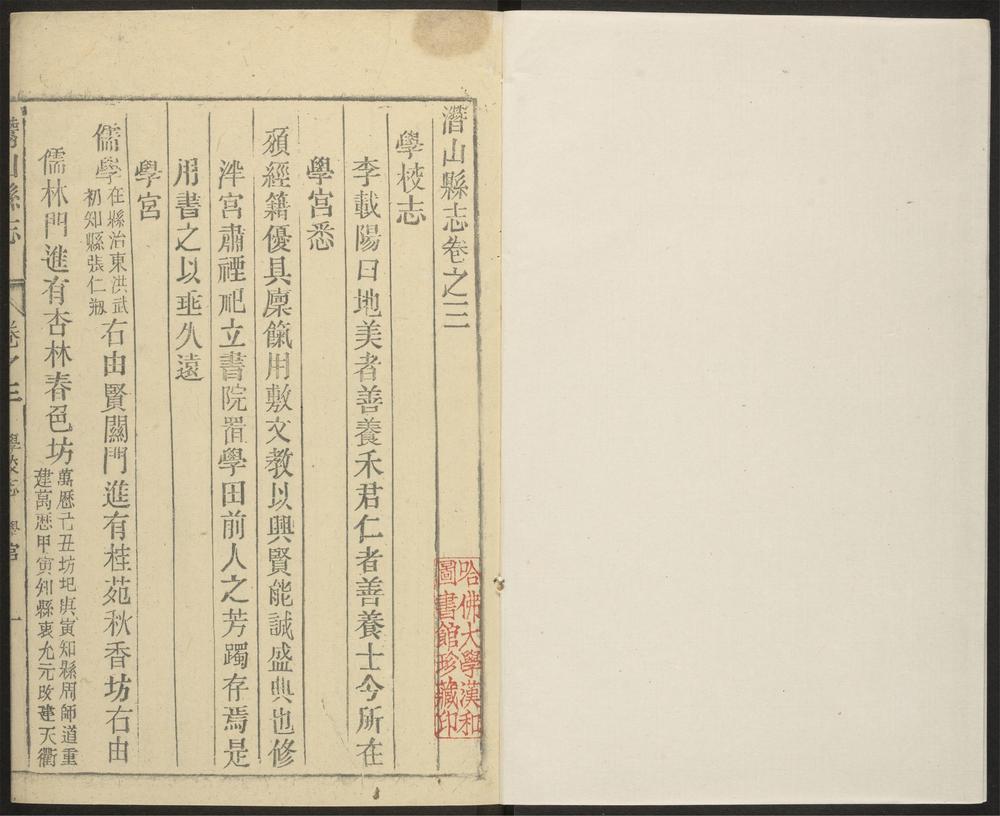 潛山縣志卷之三
學校志
李載陽曰地美者善養禾君仁者善養士今所在
學宮悉
頒經籍優具廩餼用敷文教以興賢能誠盛典也修
泮宮肅禋祀立書院置學田前人之芳躅存焉是
用書之以垂久遠
學宮
儒學在縣治東洪武初知縣張仁剏右由賢關門進有桂苑秋香坊右由
儒林門進有杏林春色坊萬曆己丑坊圯庚寅知縣周師道重建萬曆甲寅知縣衷允元改建天衢
潛山縣志 卷之三 學校志 學宮 一
哈佛大學漢和圖書館珍藏印